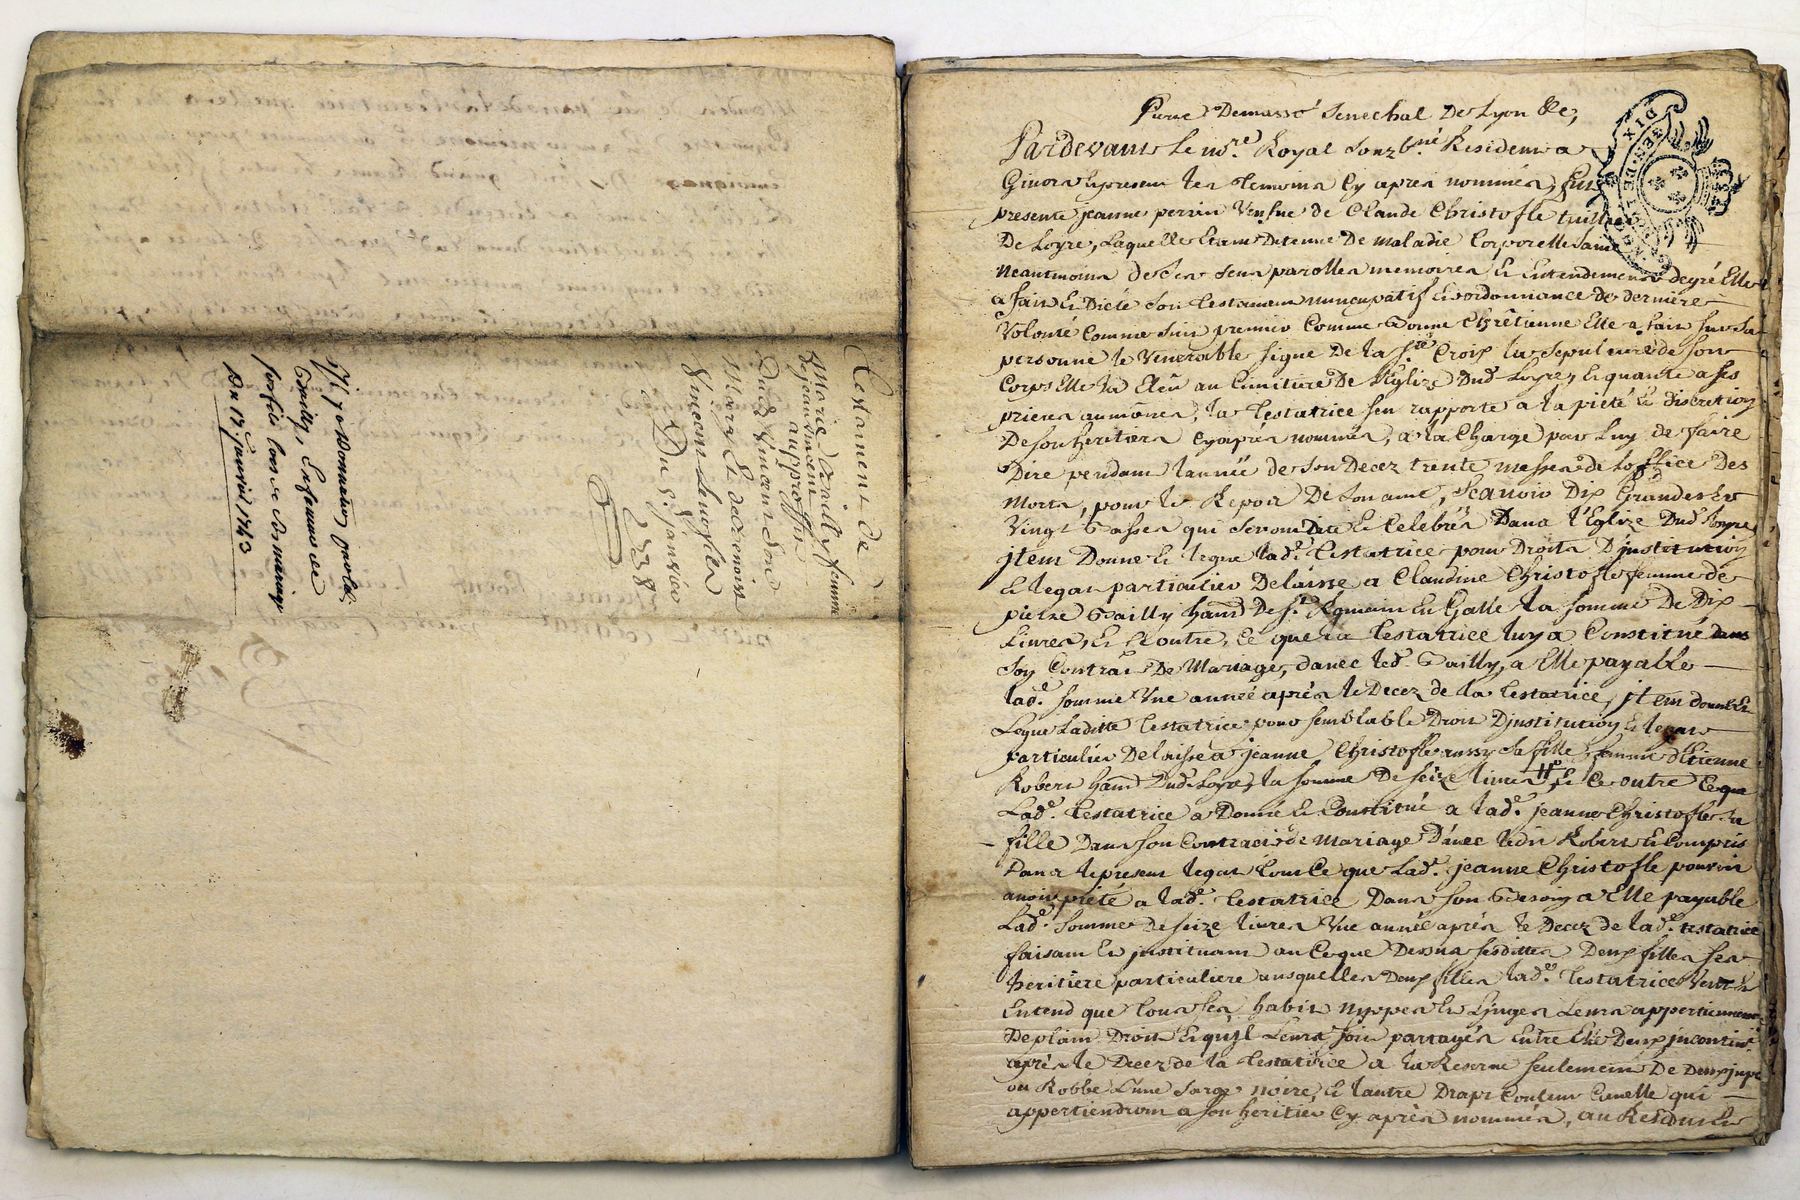 Testament de
Marie Bailly femme
de jean vincent
au proffit
Dud. Vincent Son
Mary Et de Benoist
Vincent Leurs fils
Du 5e. janvier
1738
Il y a donnation pour led.
Bailly, Enfemme ee
lors de Son mariage
Du 17 Janvier 1743
Pierre Demasso Senechal De Lyon &c,
Pardevant Le nore. Royal Sousbné. Resident a
Givors Et present les temoins Cy aprés nommés, fut
presente jeanne perrin Veufve de Claude Christofle
De Loyre, Laquelle Etant Detenue De maladie Corporelle Saine
Neantmoins de Ses Sens parolles memoires Et Entendement degré Elle
a fait Et Dicté Son testament nuncupatif Et ordonnance de derniere
Volonté Comme Suit, premier Comme Bonne Chrêtienne Elle a fait Sur Sa
personne le Venerable Signe De la Ste. Croix la Sepulture de Son
Corps Elle la Eleu au Cimitiere De l'Eglize Dud. Loyre, Et quante a Ses
prieres aumônes, la testatrice Sen rapporte a la pieté Et discretion
De Son heritiers Cy aprés nommés, a la Charge par Luy de faire
Dire pendant lannée de Son Decez trente messes de Loffice Des
Morts, pour le Repos De Son ame, Scavoir Dix Grandes Et
Vingt Basses qui Seront Dites Et Celebrés Dans l'Eglize Dud. Loyre,
jtem Donne Et legue lade. testatrice pour Droits D'jnstitution
Et legat particulier Delaissé a Claudine Christofle femme de
pierre Bailly habt. De St. Romain En Galle la Somme De Dix
Livres, Et Ce outre, Ce que la testatrice luy a Constitué dans
Son Contrat De Mariage, d'avec led. Bailly, a Elle payable
lade. Somme Une année aprés le Decez de la testatrice, jtem donne Et
Legue Laditte testatrice pour Semblable Droit D'jnstitution Et legat
Particulier Delaissé a jeanne Christofle aussy Sa fille femme d'Etienne
Robert habt. Dud. Loyre, la Somme De Seize livres, Et Ce outre Ce que
Lade. testatrice a Donné Et Constitué a lade. jeanne Christofle Sa
fille Dans Son Contract de Mariage D'avec ledit Robert Et Compris
Dans le present legat tout Ce que Lade. jeanne Christofle pouvoit
avoir preté a lade. testatrice Dans Son Besoing a Elle payable
Lade. Somme de Seize livres Une année aprés le Decez de lade. testatrice
faisant Et jnstituant au Ce que Dessus Sesdittes Deux filles Ses
heritiere particuliere ausquelles Deux filles lade. testatrice Veut Et
Entend que tous Ses habits nyppes Et Linges Leurs appartiennent
De plain Droit Et quil Leurs Soit partagés Entre Elle Deux jncontint.
aprés le Decez de la testatrice a la Reserve Seulement De Deux jupe
ou Robbe L'une Sarge noire, Et lautre Drapt Couleur Canelle qui
appertiendront a Son heritier Cy aprés nommés, au Residu Et